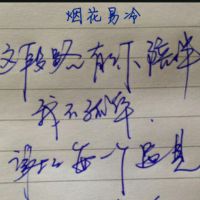 烟花易冷
这段路有你陪伴
我不孤单
谢谢每一个遇见